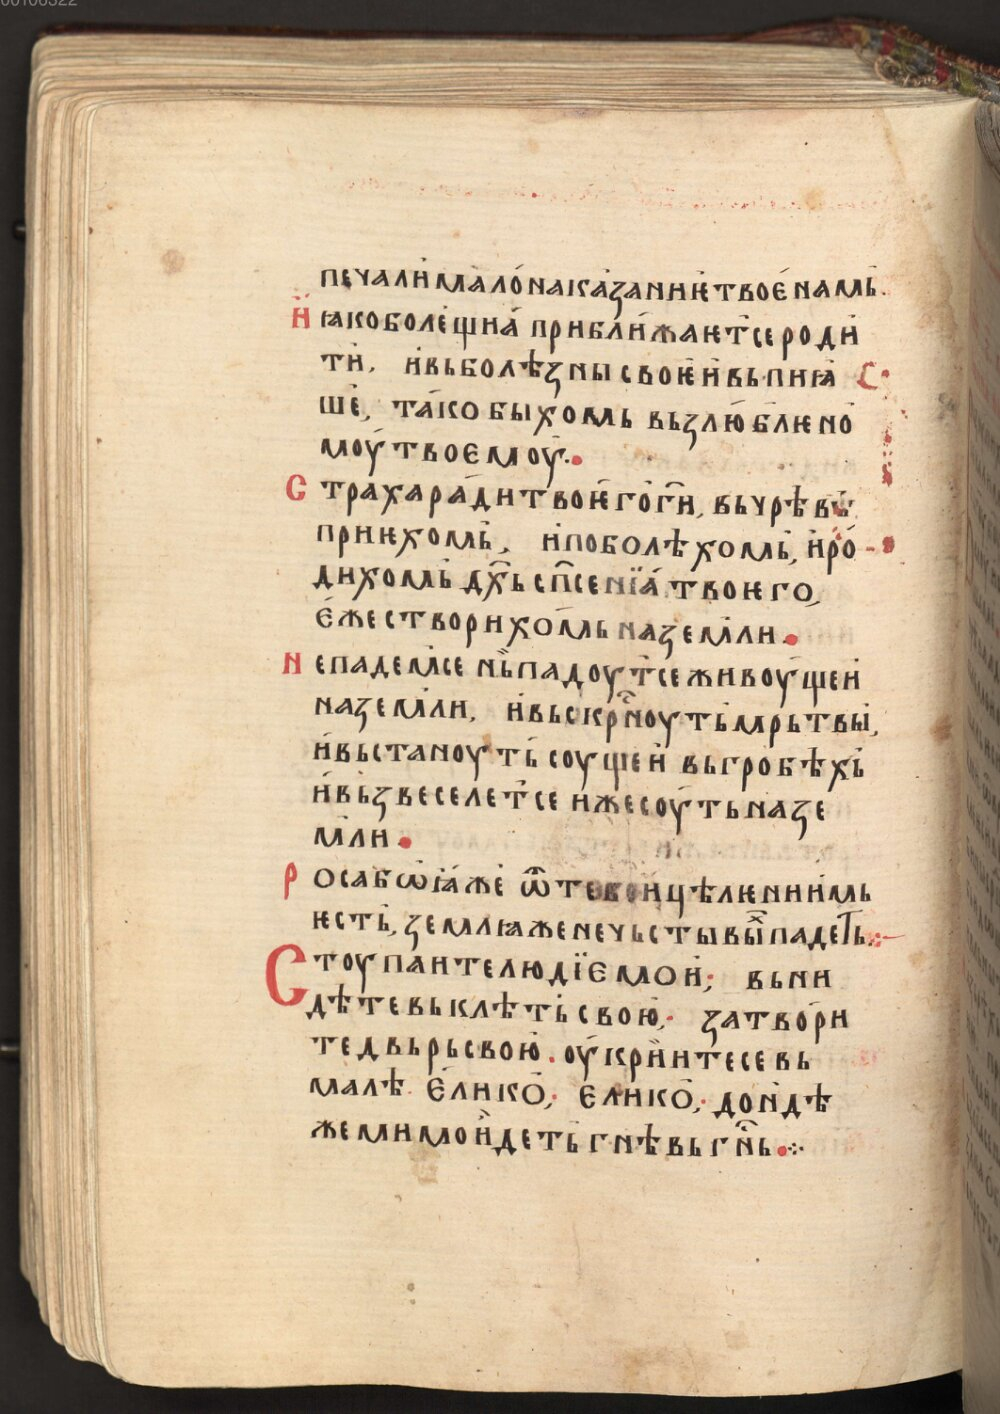 00106322
печали́ мало́ наказанїѥ твоѐ намь.
И҆ ꙗко болѐщиа̀ прибли́жаѥт҇се роди
тѝ, и҆ вь болѣзны своѥѝ вьпиꙗ
шѐ, та́ко быхомь вьзлю́блѥно
моу̀ твоемоу̀.
Страха ра́ди твоѥго̀ г҇и, вь чрѣвѣ
приѥхомь̀, и҆ поболѣхомь̀, и҆ ро
дихомь̀ дх҃ь сп҇сенїа̀ твоѥго,
е҆же створихо́мь на земли.
Не падем҇се нь̀ падоут҇се живоу́щеи
на земли, и҆ вьскрⸯн҇оуть мрьтвы̀,
и҆ вьстаноуть̀ соущеѝ вь гробѣхь̀
и҆ вьзвеселет҇се и҆же соу́ть на зе
мли.
Роса бѡ ꙗ́же ѿ тебе и҆цѣлѥнїе и҆мь
ѥсть̀, землꙗ же нечьстывы́х҇ падеть.
Стоупаите людїе моѝ; вьни
дѣте вь клѣть̀ свою̀, затво́ри
те двьрь свою̀. оу҆крⸯи́итесе вь
малѣ е҆лико̀, е҆лико̀, дондѣ
же мимо и҆деть̀ гнѣвь г҇нь.